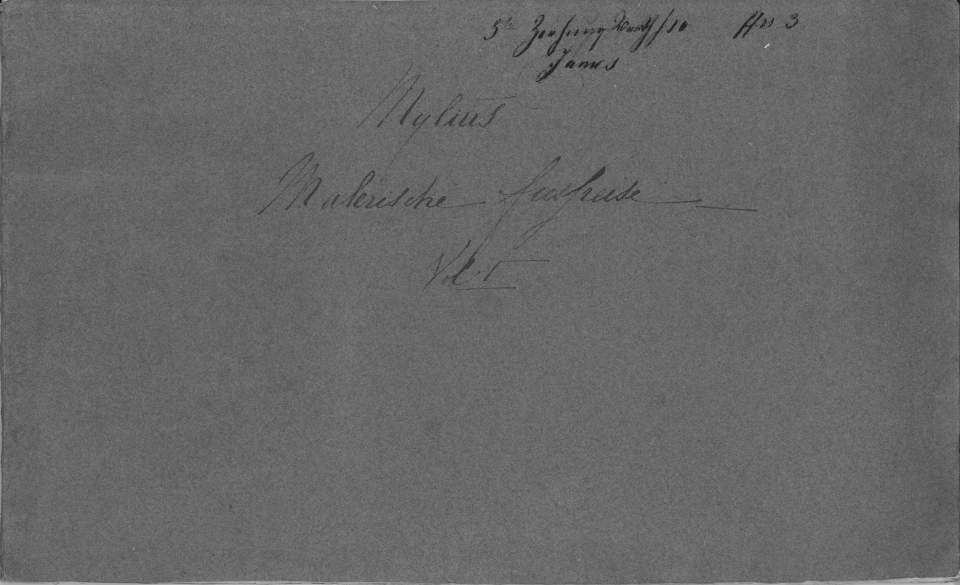 5te Ziehung No 3
James
Mylius
Malerische Fussreise
Vol. I